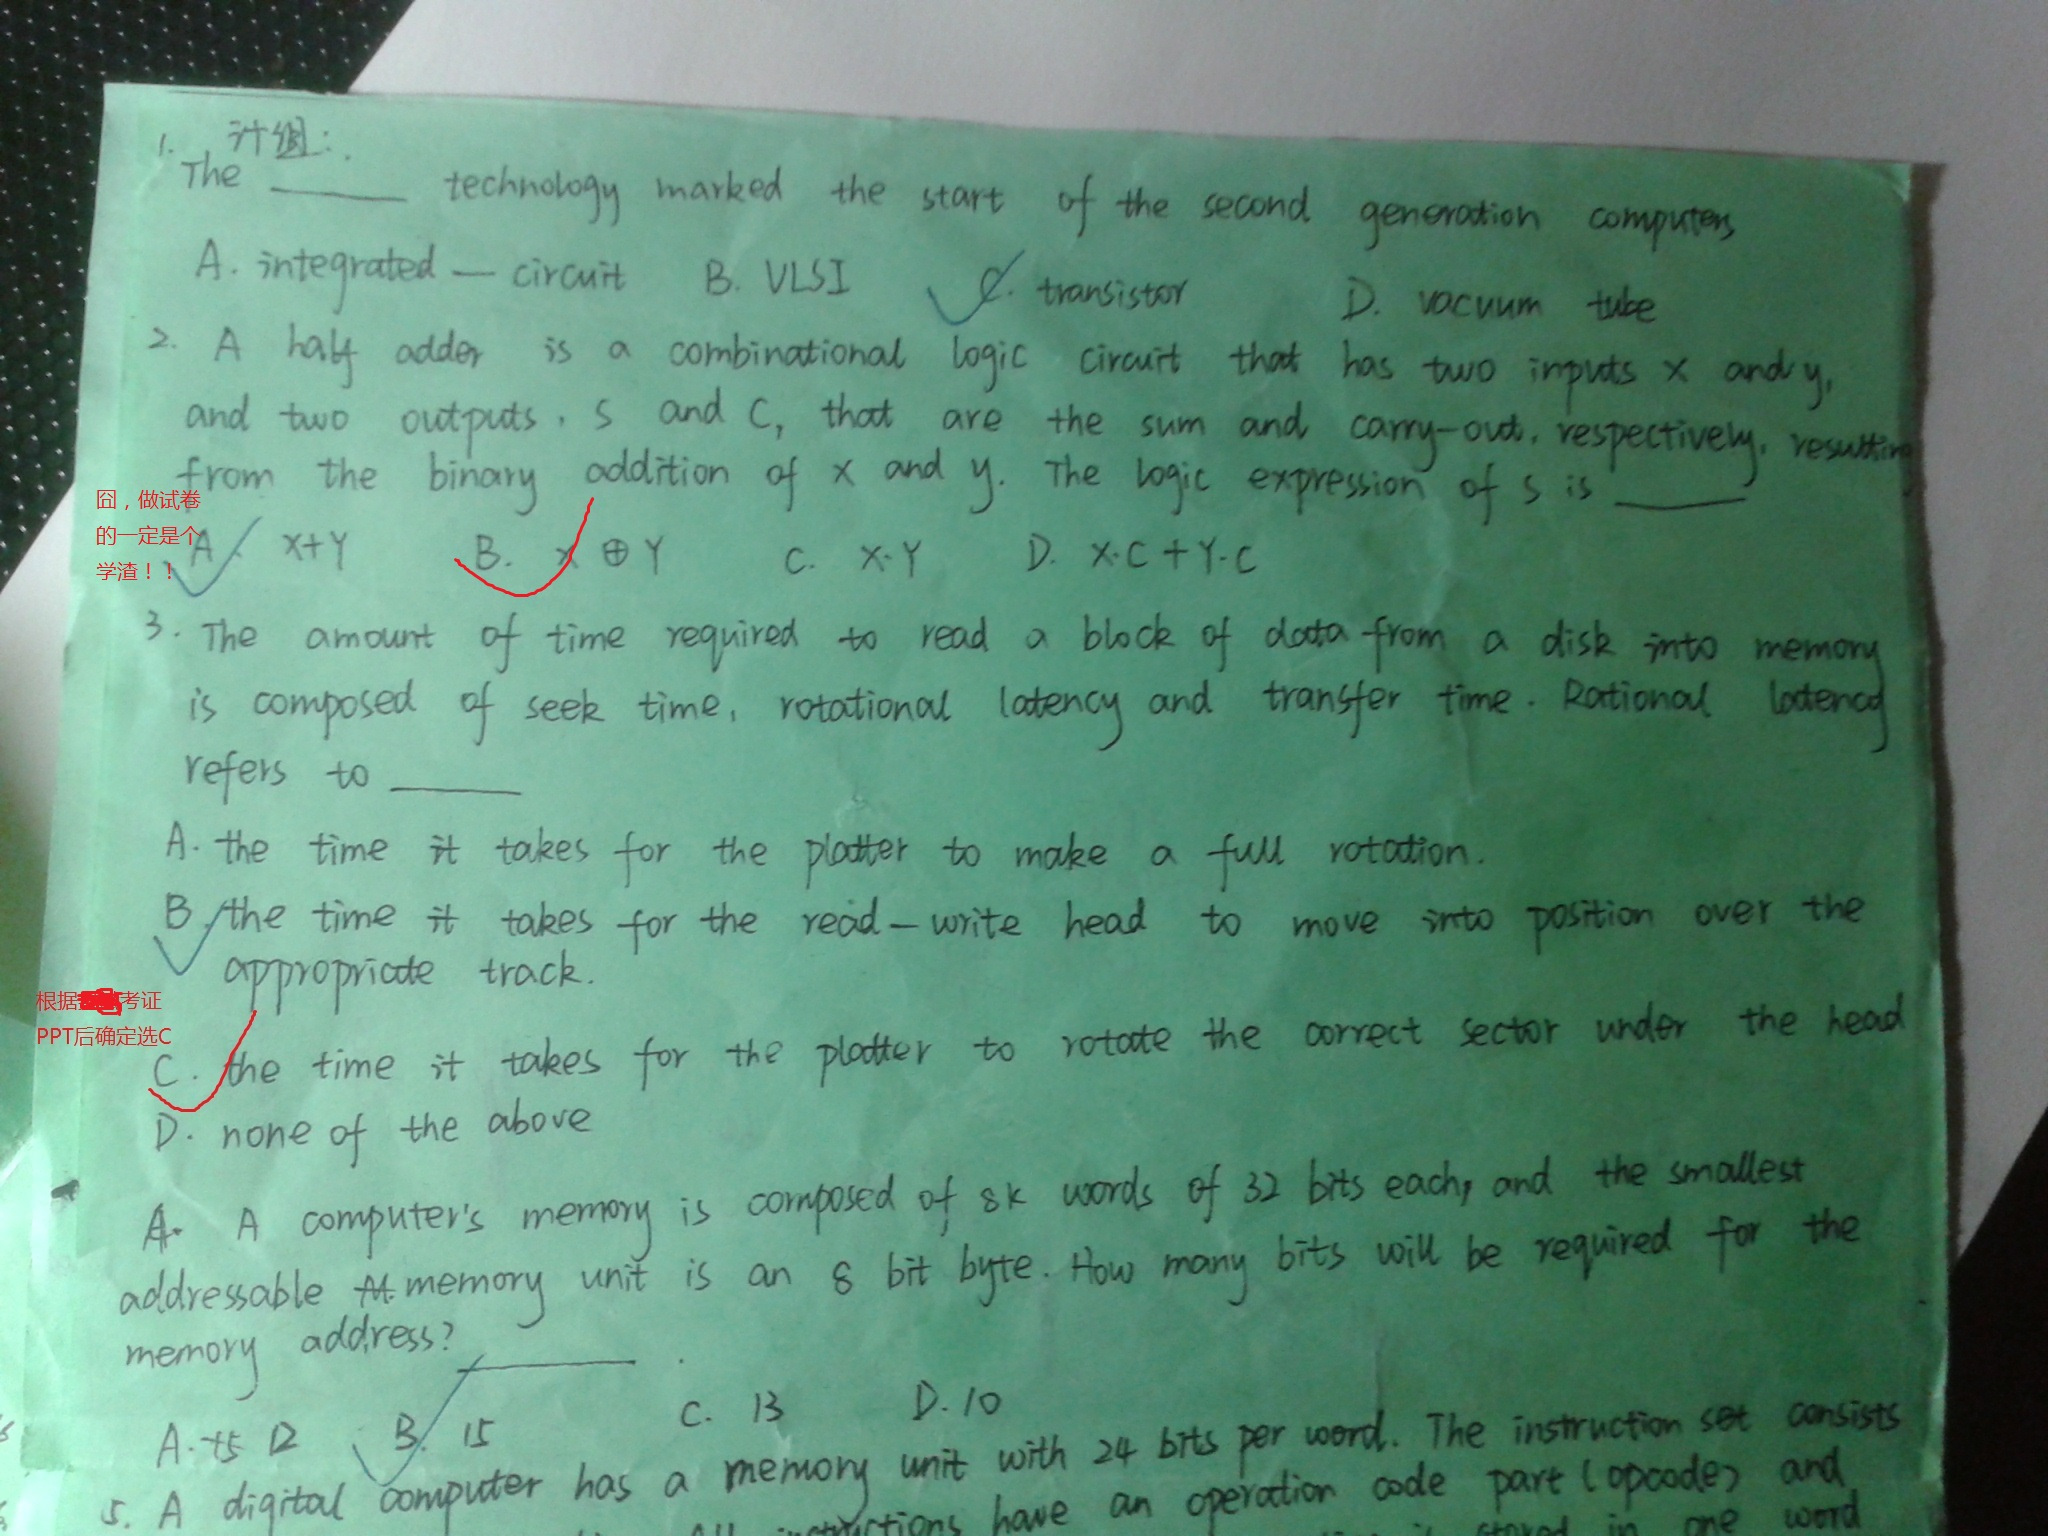 1. 计组:
The ______ technology marked the start of the second generation computers
A. integrated — circuit B. VLSI C. transistor D. vacuum tube
2. A half adder is a combinational logic circuit that has two inputs x and y,
and two outputs, S and C, that are the sum and carry-out, respectively, resulting
from the binary addition of x and y. The logic expression of S is ______
囧，做试卷
的一定是个
学渣！！
A. X+Y B. X ⊕ Y C. X·Y D. X·C + Y·C
3. The amount of time required to read a block of data from a disk into memory
is composed of seek time, rotational latency and transfer time. Rational latency
refers to ______
A. the time it takes for the platter to make a full rotation.
B. the time it takes for the read-write head to move into position over the
appropriate track.
根据考证
PPT后确定选C
C. the time it takes for the platter to rotate the correct sector under the head
D. none of the above
4. A computer's memory is composed of 8K words of 32 bits each, and the smallest
addressable memory unit is an 8 bit byte. How many bits will be required for the
memory address? ______.
A. 12 B. 15 C. 13 D. 10
5. A digital computer has a memory unit with 24 bits per word. The instruction set consists
All instructions have an operation code part (opcode) and
stored in one word